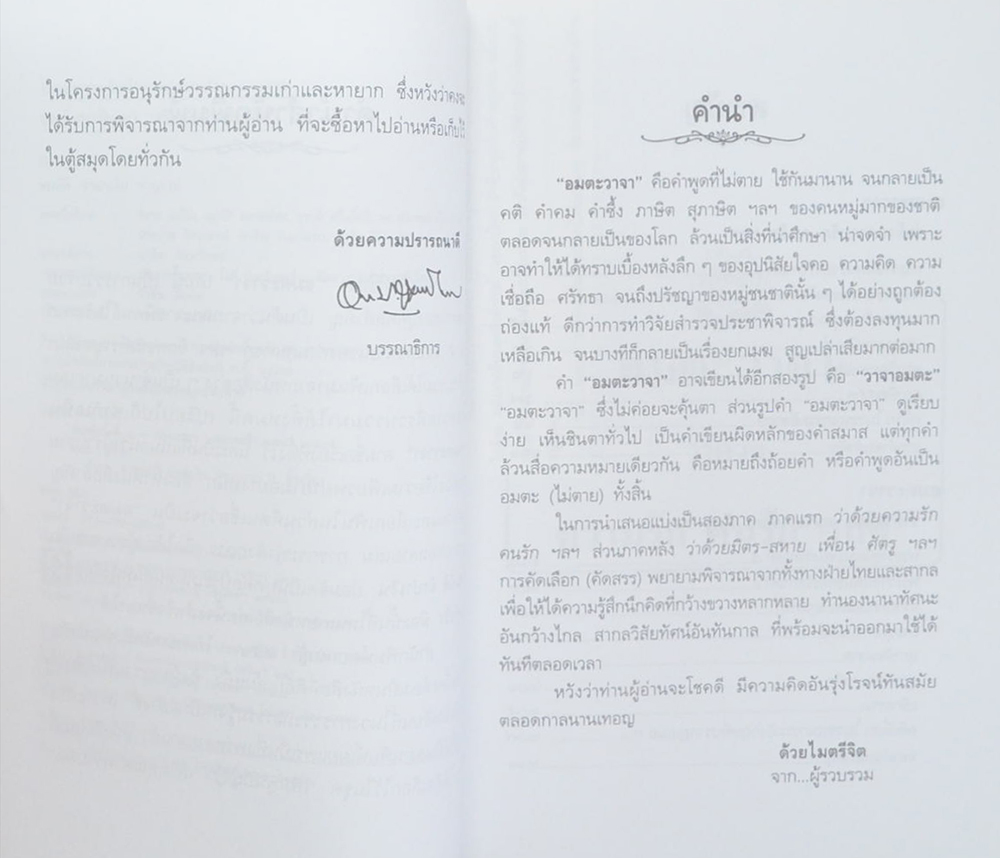 ในโครงการอนุรักษ์วรรณกรรมเก่าและหายาก ซึ่งหวังว่าคงจะ
ได้รับการพิจารณาจากท่านผู้อ่าน ที่จะซื้อหาไปอ่านหรือเก็บไว้
ในตู้สมุดโดยทั่วกัน
ด้วยความปรารถนาดี
บรรณาธิการ
คำนำ
“อมตะวาจา” คือคำพูดที่ไม่ตาย ใช้กันมานาน จนกลายเป็น
คติ คำคม คำซึ้ง ภาษิต สุภาษิต ฯลฯ ของคนหมู่มากของชาติ
ตลอดจนกลายเป็นของโลก ล้วนเป็นสิ่งที่น่าศึกษา น่าจดจำ เพราะ
อาจทำให้ได้ทราบเบื้องหลังลึก ๆ ของอุปนิสัยใจคอ ความคิด ความ
เชื่อถือ ศรัทธา จนถึงปรัชญาของหมู่ชนชาตินั้น ๆ ได้อย่างถูกต้อง
ถ่องแท้ ดีกว่าการทำวิจัยสำรวจประชาพิจารณ์ ซึ่งต้องลงทุนมาก
เหลือเกิน จนบางทีก็กลายเป็นเรื่องยกเมฆ สูญเปล่าเสียมากต่อมาก
คำ “อมตะวาจา” อาจเขียนได้อีกสองรูป คือ “วาจาอมตะ”
“อมตะวาจา” ซึ่งไม่ค่อยจะคุ้นตา ส่วนรูปคำ “อมตะวาจา” ดูเรียบ
ง่าย เห็นชินตาทั่วไป เป็นคำเขียนผิดหลักของคำสมาส แต่ทุกคำ
ล้วนสื่อความหมายเดียวกัน คือหมายถึงถ้อยคำ หรือคำพูดอันเป็น
อมตะ (ไม่ตาย) ทั้งสิ้น
ในการนำเสนอแบ่งเป็นสองภาค ภาคแรก ว่าด้วยความรัก
คนรัก ฯลฯ ส่วนภาคหลัง ว่าด้วยมิตร-สหาย เพื่อน ศัตรู ฯลฯ
การคัดเลือก (คัดสรร) พยายามพิจารณาจากทั้งทางฝ่ายไทยและสากล
เพื่อให้ได้ความรู้สึกนึกคิดที่กว้างขวางหลากหลาย ทำนองนานาทัศนะ
อันกว้างไกล สากลวิสัยทัศน์อันทันกาล ที่พร้อมจะนำออกมาใช้ได้
ทันทีตลอดเวลา
หวังว่าท่านผู้อ่านจะโชคดี มีความคิดอันรุ่งโรจน์ทันสมัย
ตลอดกาลนานเทอญ
ด้วยไมตรีจิต
จาก...ผู้รวบรวม